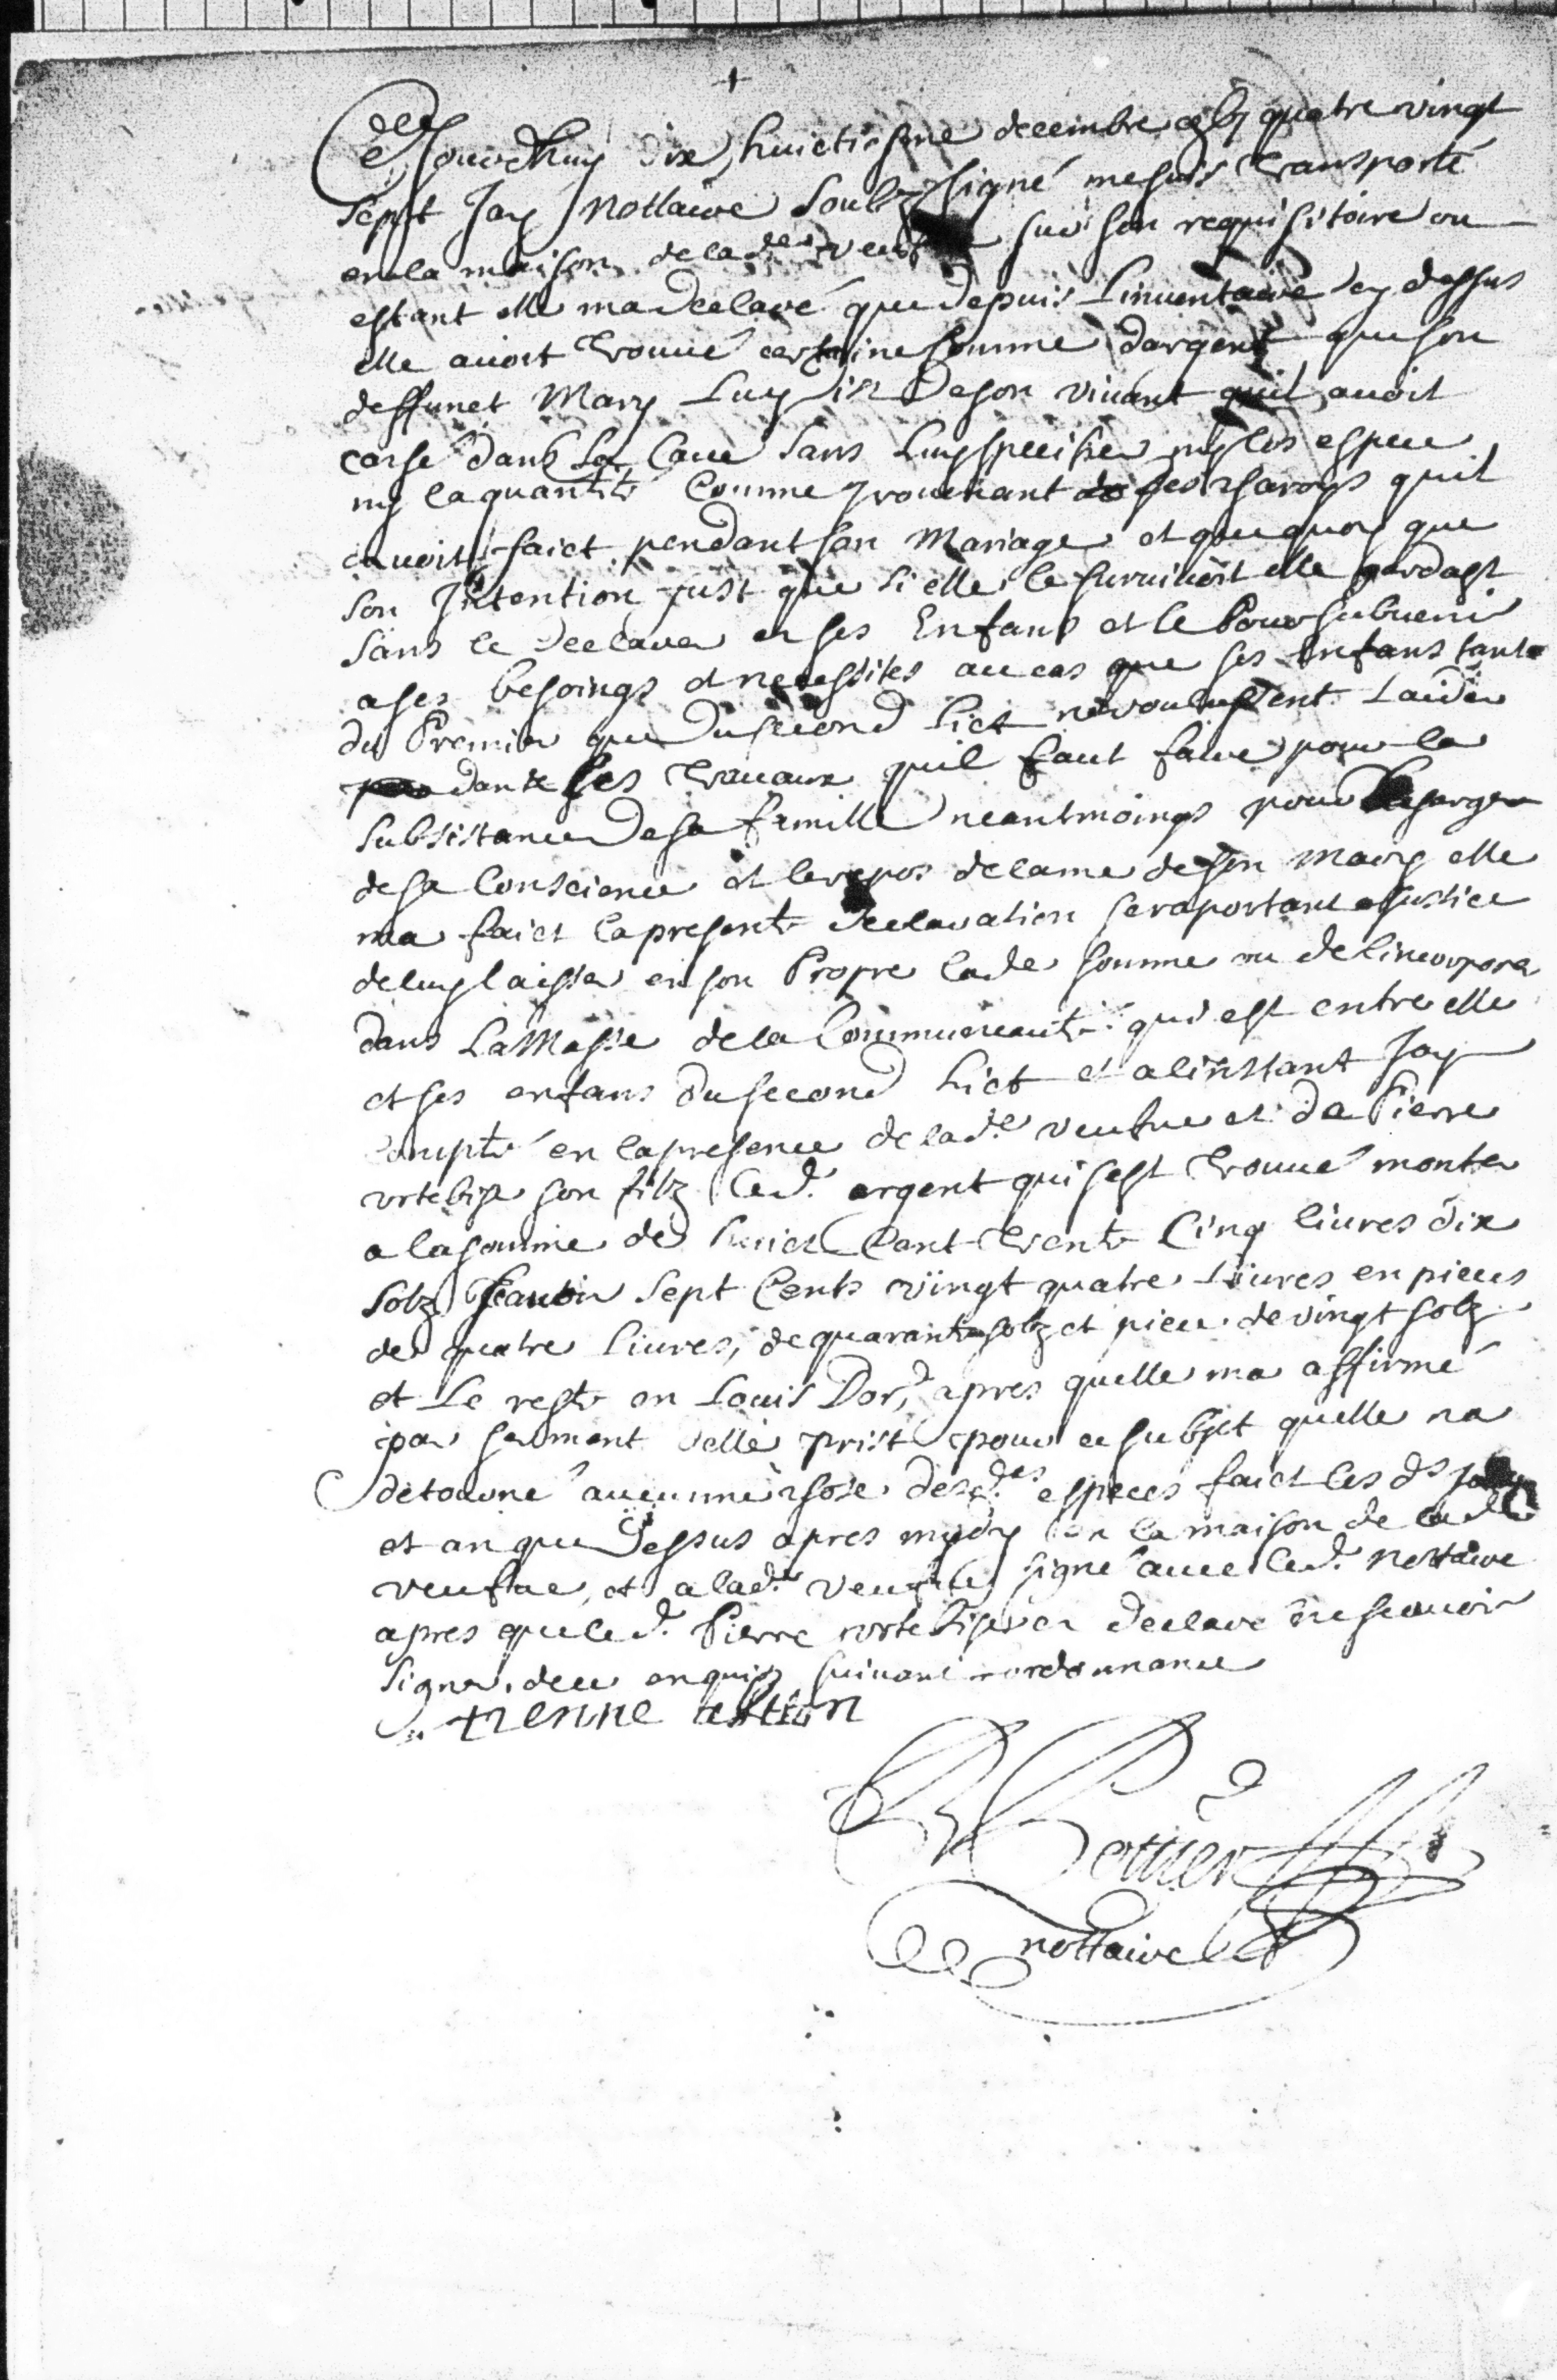 +
Cejourdhuy dix huictiesme decembre gbj quatre vingt
sept Jay Nottaire soubzsigné me suis transporté
en la maison de lade veufve sur son requisitoire ou
estant elle ma declaré que depuis linventaire cy dessus
elle avoit trouvé certaine somme dargent que son
deffunct Mary luy dit de son vivant quil avoit
caché dans la cave sans luy specifier ny les espece
ny la quantité comme provenant de ses
avoit faict pendant son Mariage et que quoy que
son Intention fust que si elle le survivoit elle gardast
sans le declarer a ses Enfans et le Pour subvenir
a ses besoings et necessites au cas que ses enfans tant
du Premier que du second lict ne voulussent laider
dans les travaux quil faut faire pour la
subsistance de sa famille neantmoings pour
de sa Conscience et le repos de lame de son mary elle
ma faict la presente declaration se raportant a Justice
de luy laisser en son Propre lade somme ou de lincorporer
dans La Masse de la Communauté qui est entre elle
et ses enfans du second lict et a linstant Jay
compté en la presence de lade veufve et de Pierre
son filz led. argent qui sest trouvé monter
a la somme de huict Cent trente Cinq livres dix
solz scavoir sept Cents vingt quatre livres en pieces
de quatre livres, de quarante solz et piece de vingt solz
et Le reste en Louis Dor, apres quelle ma affirmé
par serment delle prist pour ce subjet quelle na
detourné aucunne chose desdes especes faict les ds Jour
et an que dessus apres mydy en la maison de lade
veufve, et a lade veufve signé avec led. nottaire
apres que led. Pierre a declaré ne scavoir
signer, de ce enquis suivant lordonnance
tienne
Pottier
nottaire